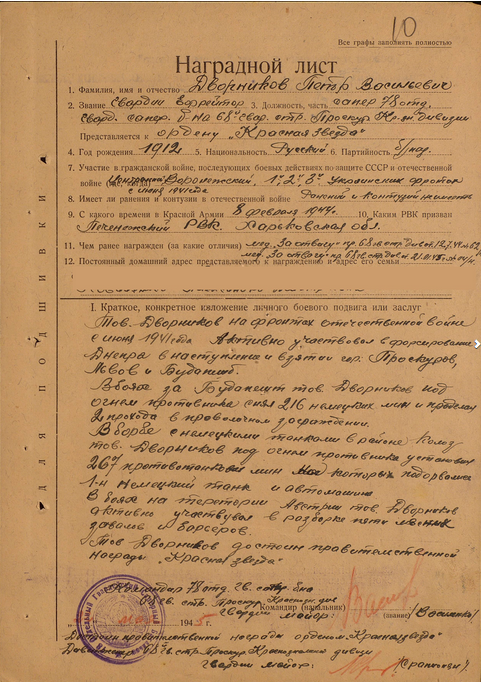 10
Все графы заполнять полностью
Наградной лист
1. Фамилия, имя и отчество Дворников Петр Васильевич
2. Звание Гвардии ефрейтор 3. Должность, часть сапер 78 отд.
гвард. сапер. б-на 68 гвар. стр. Проскур. дивизии
Представляется к ордену „Красная звезда"
4. Год рождения 1912 5. Национальность Русский 6. Партийность б/пар.
7. Участие в гражданской войне, последующих боевых действиях по защите СССР и отечественной
войне (где, когда) Воронежский, 1, 2, 3 Украинских фронтах
с июня 1941 года
8. Имеет ли ранения и контузии в отечественной войне Ранений и контузий не имеет
9. С какого времени в Красной Армии 8 февраля 1944 г. 10. Каким РВК призван
РВК. Харьковская обл.
11. Чем ранее награжден (за какие отличия) мед. „За отвагу" пр. 68 гв. стр. див.
12. Постоянный домашний адрес представляемого к награждению и адрес его семьи мед. „За отвагу" пр. 68 гв. стр. див.
I. Краткое, конкретное изложение личного боевого подвига или заслуг
Тов. Дворников на фронтах отечественной войне
с июня 1941 года. Активно участвовал в форсировании
Днепра в наступлении и взятии гор. Проскуров,
Львов и Будапешт.
В боях за Будапешт тов. Дворников под
огнем противника снял 216 немецких мин и проделал
2 прохода в проволочном заграждении.
В борьбе с немецкими танками в районе
тов. Дворников под огнем противника установил
267 противотанковых мин на которых подорвались
1-н немецкий танк и автомашина
В боях на територии Австрии тов. Дворников
активно участвовал в разборке пяти
завалов и барьеров.
Тов Дворников достоин правительственной
награды „Красная звезда"
Командир 78 отд. гв. сапер. б-на
68 гв. стр. Проскур. Краснозн. див
Командир (начальник)
гвардии майор:
(звание)
194 5 г.
Достоин правительственной награды орденом „Красная звезда"
68 гв. стр. Проскур. Краснознаменной дивизии
гвардии майор:
Для подшивки